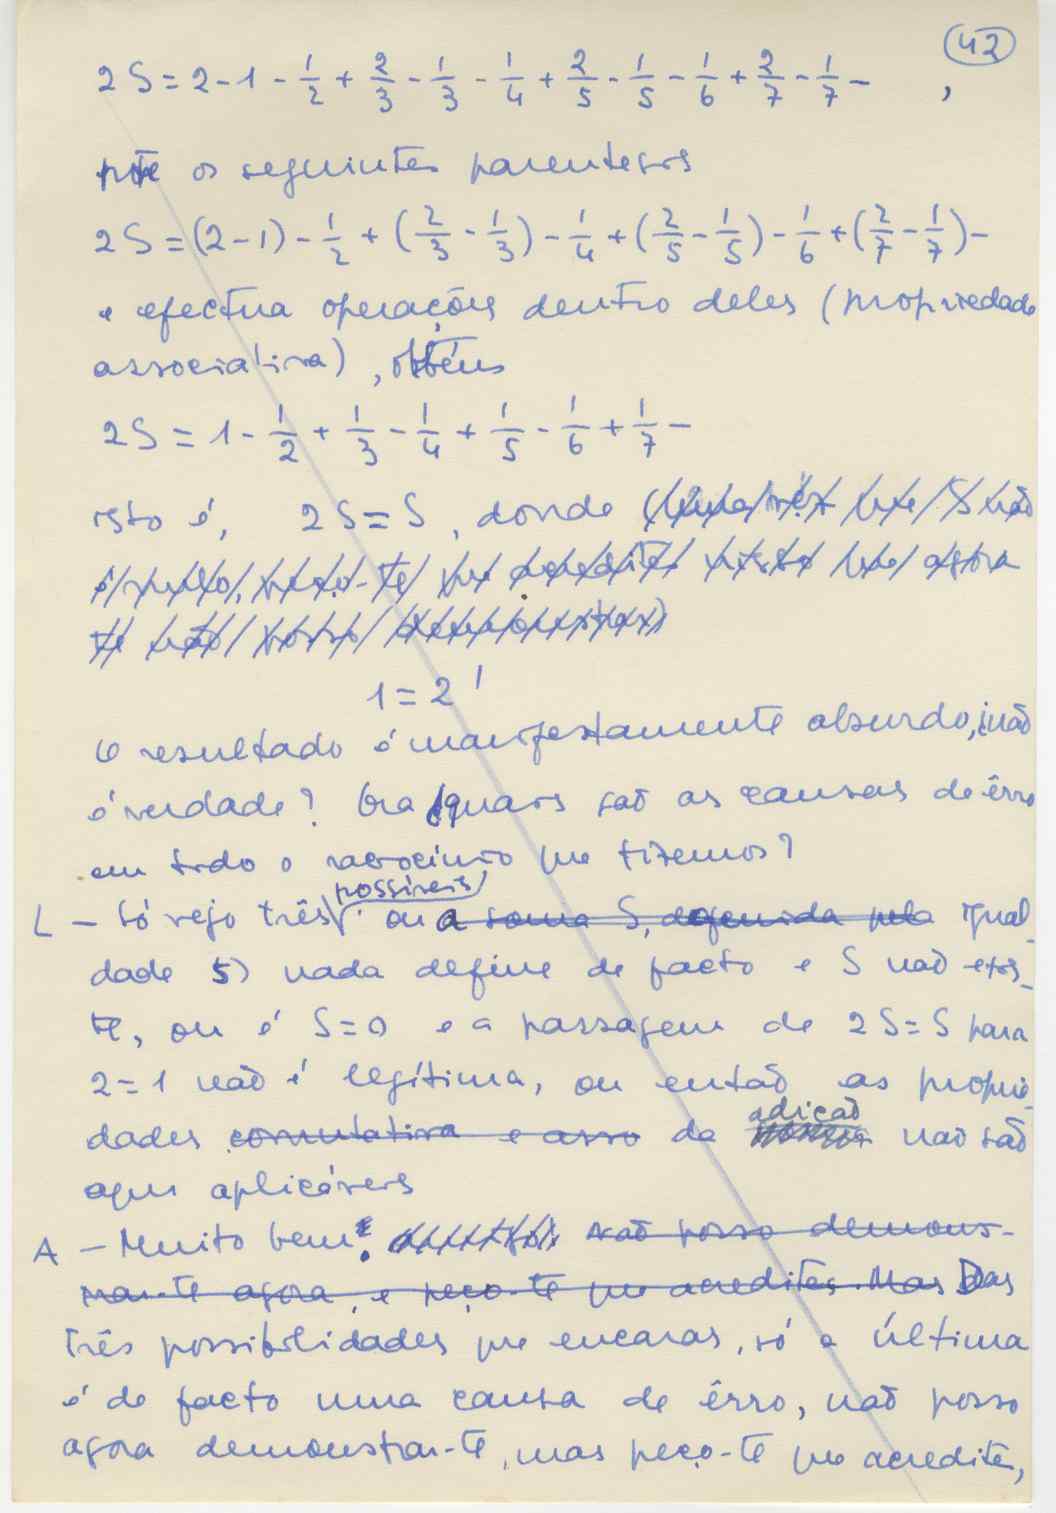 42
2S = 2 - 1 - 1/2 + 2/3 - 1/3 - 1/4 + 2/5 - 1/5 - 1/6 + 2/7 - 1/7 - ,
põe os seguintes parenteses
2S = (2-1) - 1/2 + (2/3 - 1/3) - 1/4 + (2/5 - 1/5) - 1/6 + (2/7 - 1/7) -
e efectua operações dentro deles (propriedade
associativa), obténs
2S = 1 - 1/2 + 1/3 - 1/4 + 1/5 - 1/6 + 1/7 -
isto é, 2S = S, donde que S não
é peço-te que acredites nisso que agora
te não posso
1 = 2 !
O resultado é manifestamente absurdo, não
é verdade? Ora quais são as causas de êrro
em todo o raciocínio que fizemos?
possíveis
L - Só vejo três: ou a soma S, definida pela igual-
dade 5) nada define de facto e S não exis-
te, ou é S=0 e a passagem de 2S=S para
2=1 não é legítima, ou então as proprie-
adição
dades comutativa e asso da não são
aqui aplicáveis
A - Muito bem! não posso demons-
trar-te agora, e peço-te que acredites. Mas Das
três possibilidades que encaras, só a última
é de facto uma causa de êrro, não posso
agora demonstrar-te, mas peço-te que acredites,